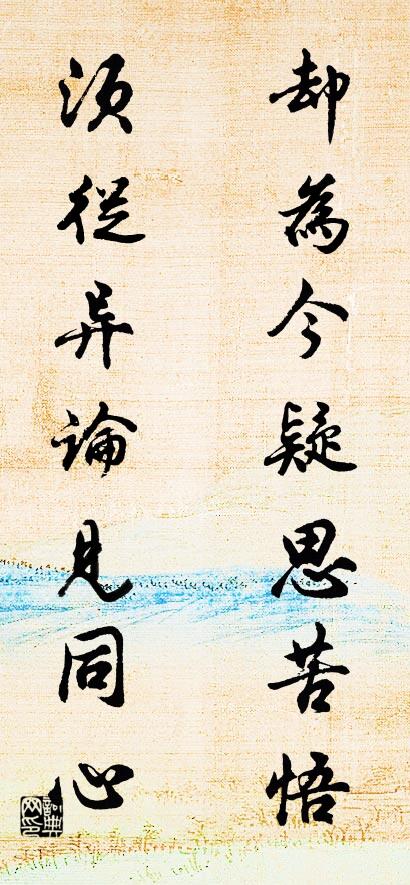 却為今疑思苦悟
須從异論見同心